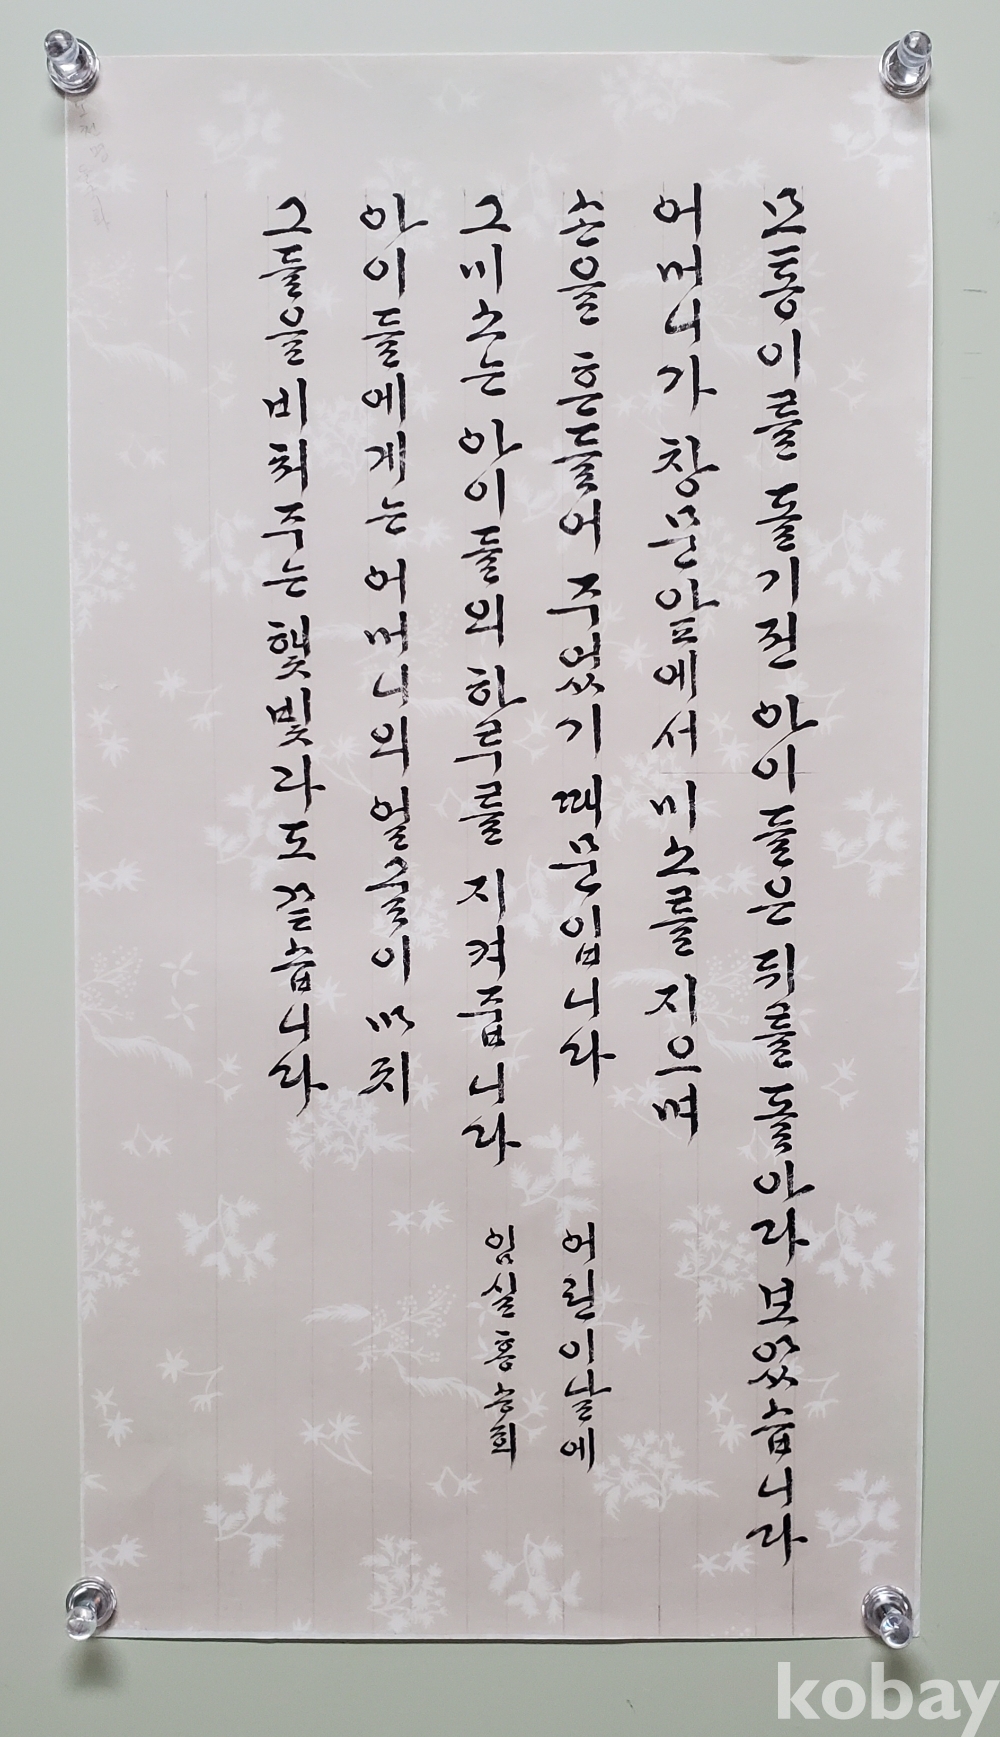 모퉁이를 돌기전 아이들은 뒤를 돌아라 보았습니다
어머니가 창문앞에서 미소를 지으며
손을 흔들어 주었기 때문입니다
그 미소는 아이들의 하루를 지켜줍니다
아이들에게는 어머니의 얼굴이 마치
그들을 비춰주는 햇빛라도 같습니다
어린이날에
임실 홍승희
kobay